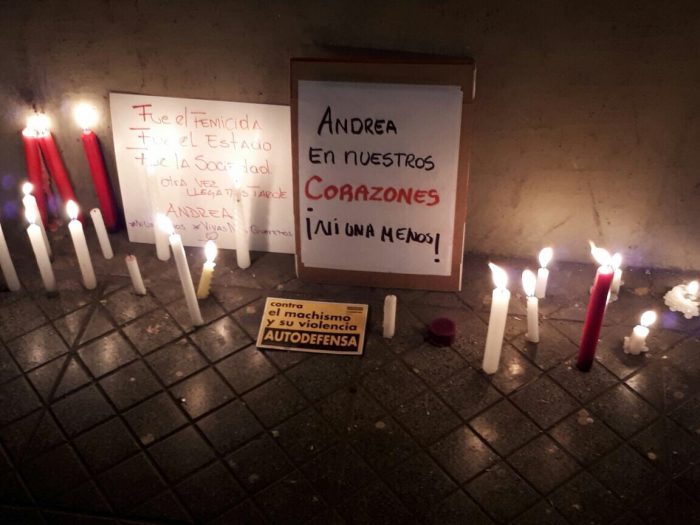 Fue el Femicida
Fue el Estado
Fue la Sociedad
otra vez
llegamos tarde
Andrea
Vivas Nos Queremos
Andrea
en nuestros
Corazones
¡Ni una menos!
contra
el machismo
y su violencia
AUTODEFENSA